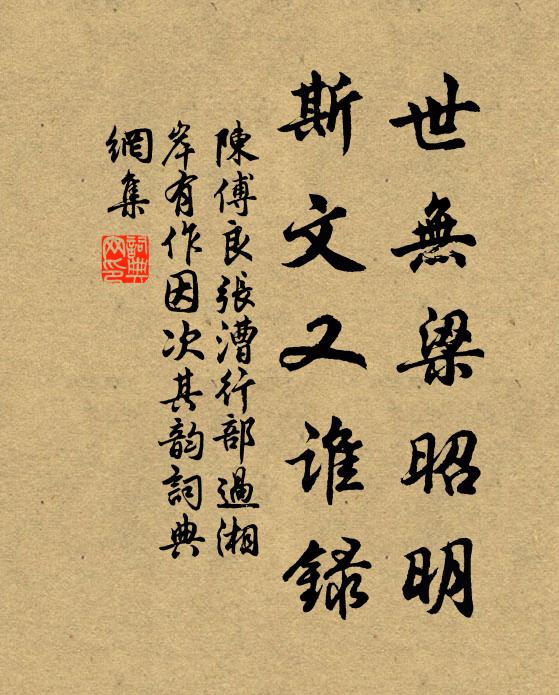 世無梁昭明
斯文又誰錄
陳傅良張漕行部過湘
岸有作因次其韵詞典
網集
詞典網印